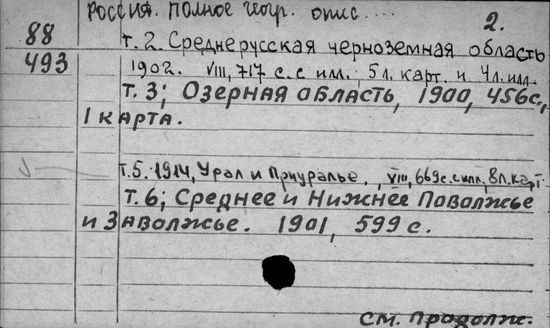 Россия. Полное геогр. опис....
2.
88
493
т. 2. Среднерусская черноземная область
1902. VIII, 717 с. с илл. 5 л. карт. и 4 л. илл.
т. 3; Озерная область, 1900, 456 с.,
1 карта.
т. 5. 1914, Урал и Приуралье., VIII, 669 с. с илл., 8 л. карт.
т. 6; Среднее и Нижнее Поволжье
и Заволжье. 1901, 599 с.
см. продолж.